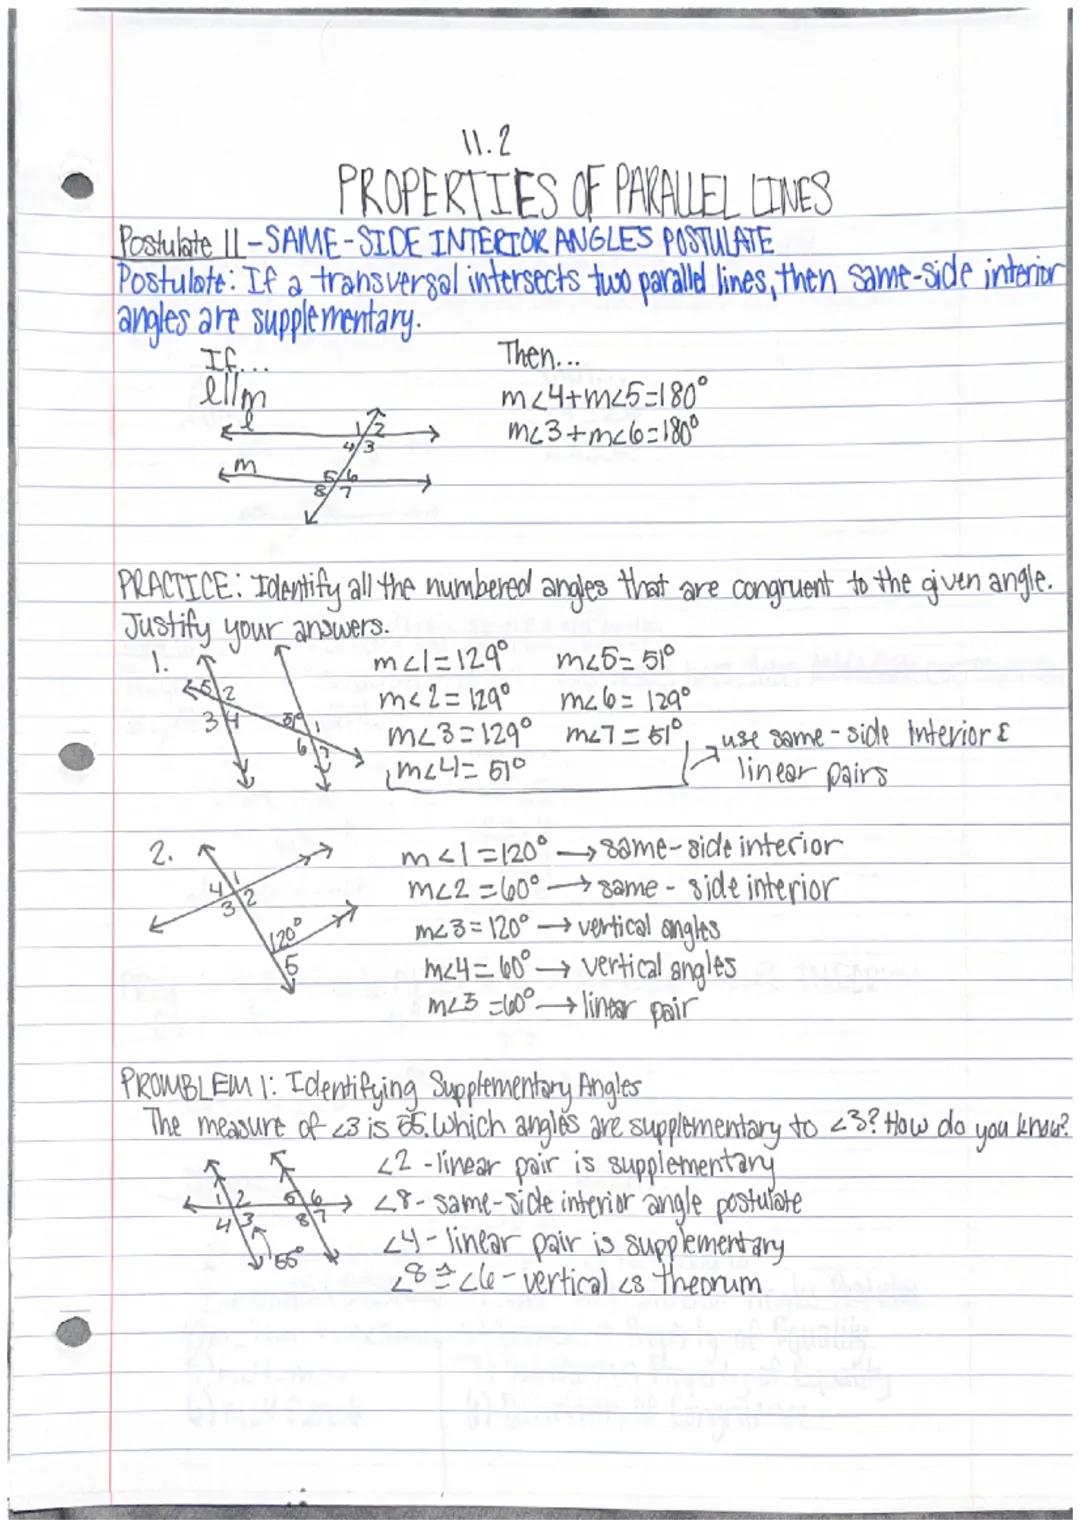 11.2
PROPERTIES OF PARALLEL LINES
Postulate 11-SAME-SIDE INTERIOR ANGLES POSTULATE
Postulate: If a transversal intersects two parallel lines, then same-side interior
angles are supplementary.
If... Then...
l||m m∠4+m∠5=180°
l 1 2 m∠3+m∠6=180°
4 3
m 5 6
8 7
PRACTICE: Identify all the numbered angles that are congruent to the given angle.
Justify your answers.
1. m∠1=129° m∠5=51°
5 2 m∠2=129° m∠6=129°
3 4 51° 1 m∠3=129° m∠7=51° → use same-side Interior &
6 7 m∠4=51° linear pairs
2. m∠1=120° → same-side interior
4 1 m∠2=60° → same-side interior
3 2 m∠3=120° → vertical angles
120° m∠4=60° → vertical angles
5 m∠5=60° → linear pair
PROMBLEM 1: Identifying Supplementary Angles
The measure of ∠3 is 55. Which angles are supplementary to ∠3? How do you know?
∠2 -linear pair is supplementary
1 2 5 6 ∠8- same-side interior angle postulate
4 3 8 7 ∠4-linear pair is supplementary
55° ∠8≅∠6-vertical ∠s theorum